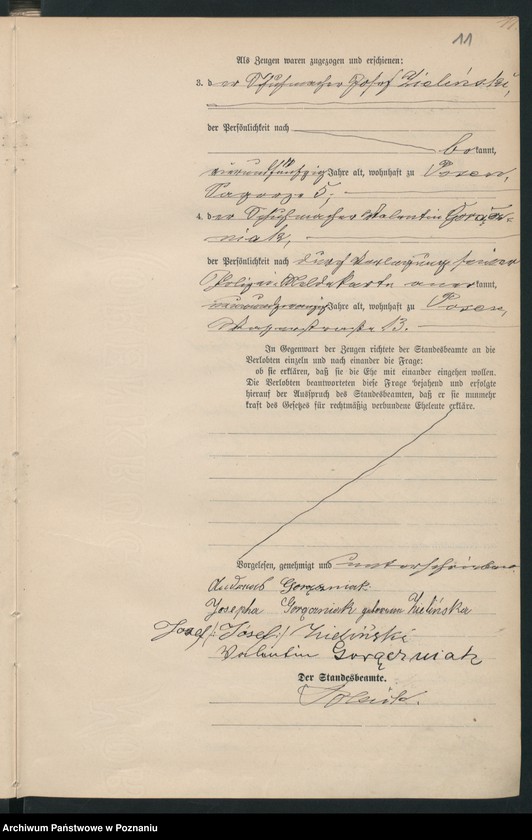 11
11.
Als Zeugen waren zugezogen und erschienen:
3. der Schuhmacher Josef Zieliński,
der Persönlichkeit nach
bekannt,
Jahre alt, wohnhaft zu Posen,
Sagorze 5;
4. der Schuhmacher Valentin Gorącz-
niak,
der Persönlichkeit nach durch Vorlegung seiner
Polizei Meldekarte anerkannt,
Jahre alt, wohnhaft zu Posen,
13.
In Gegenwart der Zeugen richtete der Standesbeamte an die
Verlobten einzeln und nach einander die Frage:
ob sie erklären, daß sie die Ehe mit einander eingehen wollen.
Die Verlobten beantworteten diese Frage bejahend und erfolgte
hierauf der Ausspruch des Standesbeamten, daß er sie nunmehr
kraft des Gesetzes für rechtmäßig verbundene Eheleute erkläre.
Vorgelesen, genehmigt und unterschrieben
Gorączniak.
Josepha Gorączniak geborene Zielińska
Josef /: Józef :/ Zieliński
Valentin Gorączniak
Der Standesbeamte.
Archiwum Państwowe w Poznaniu